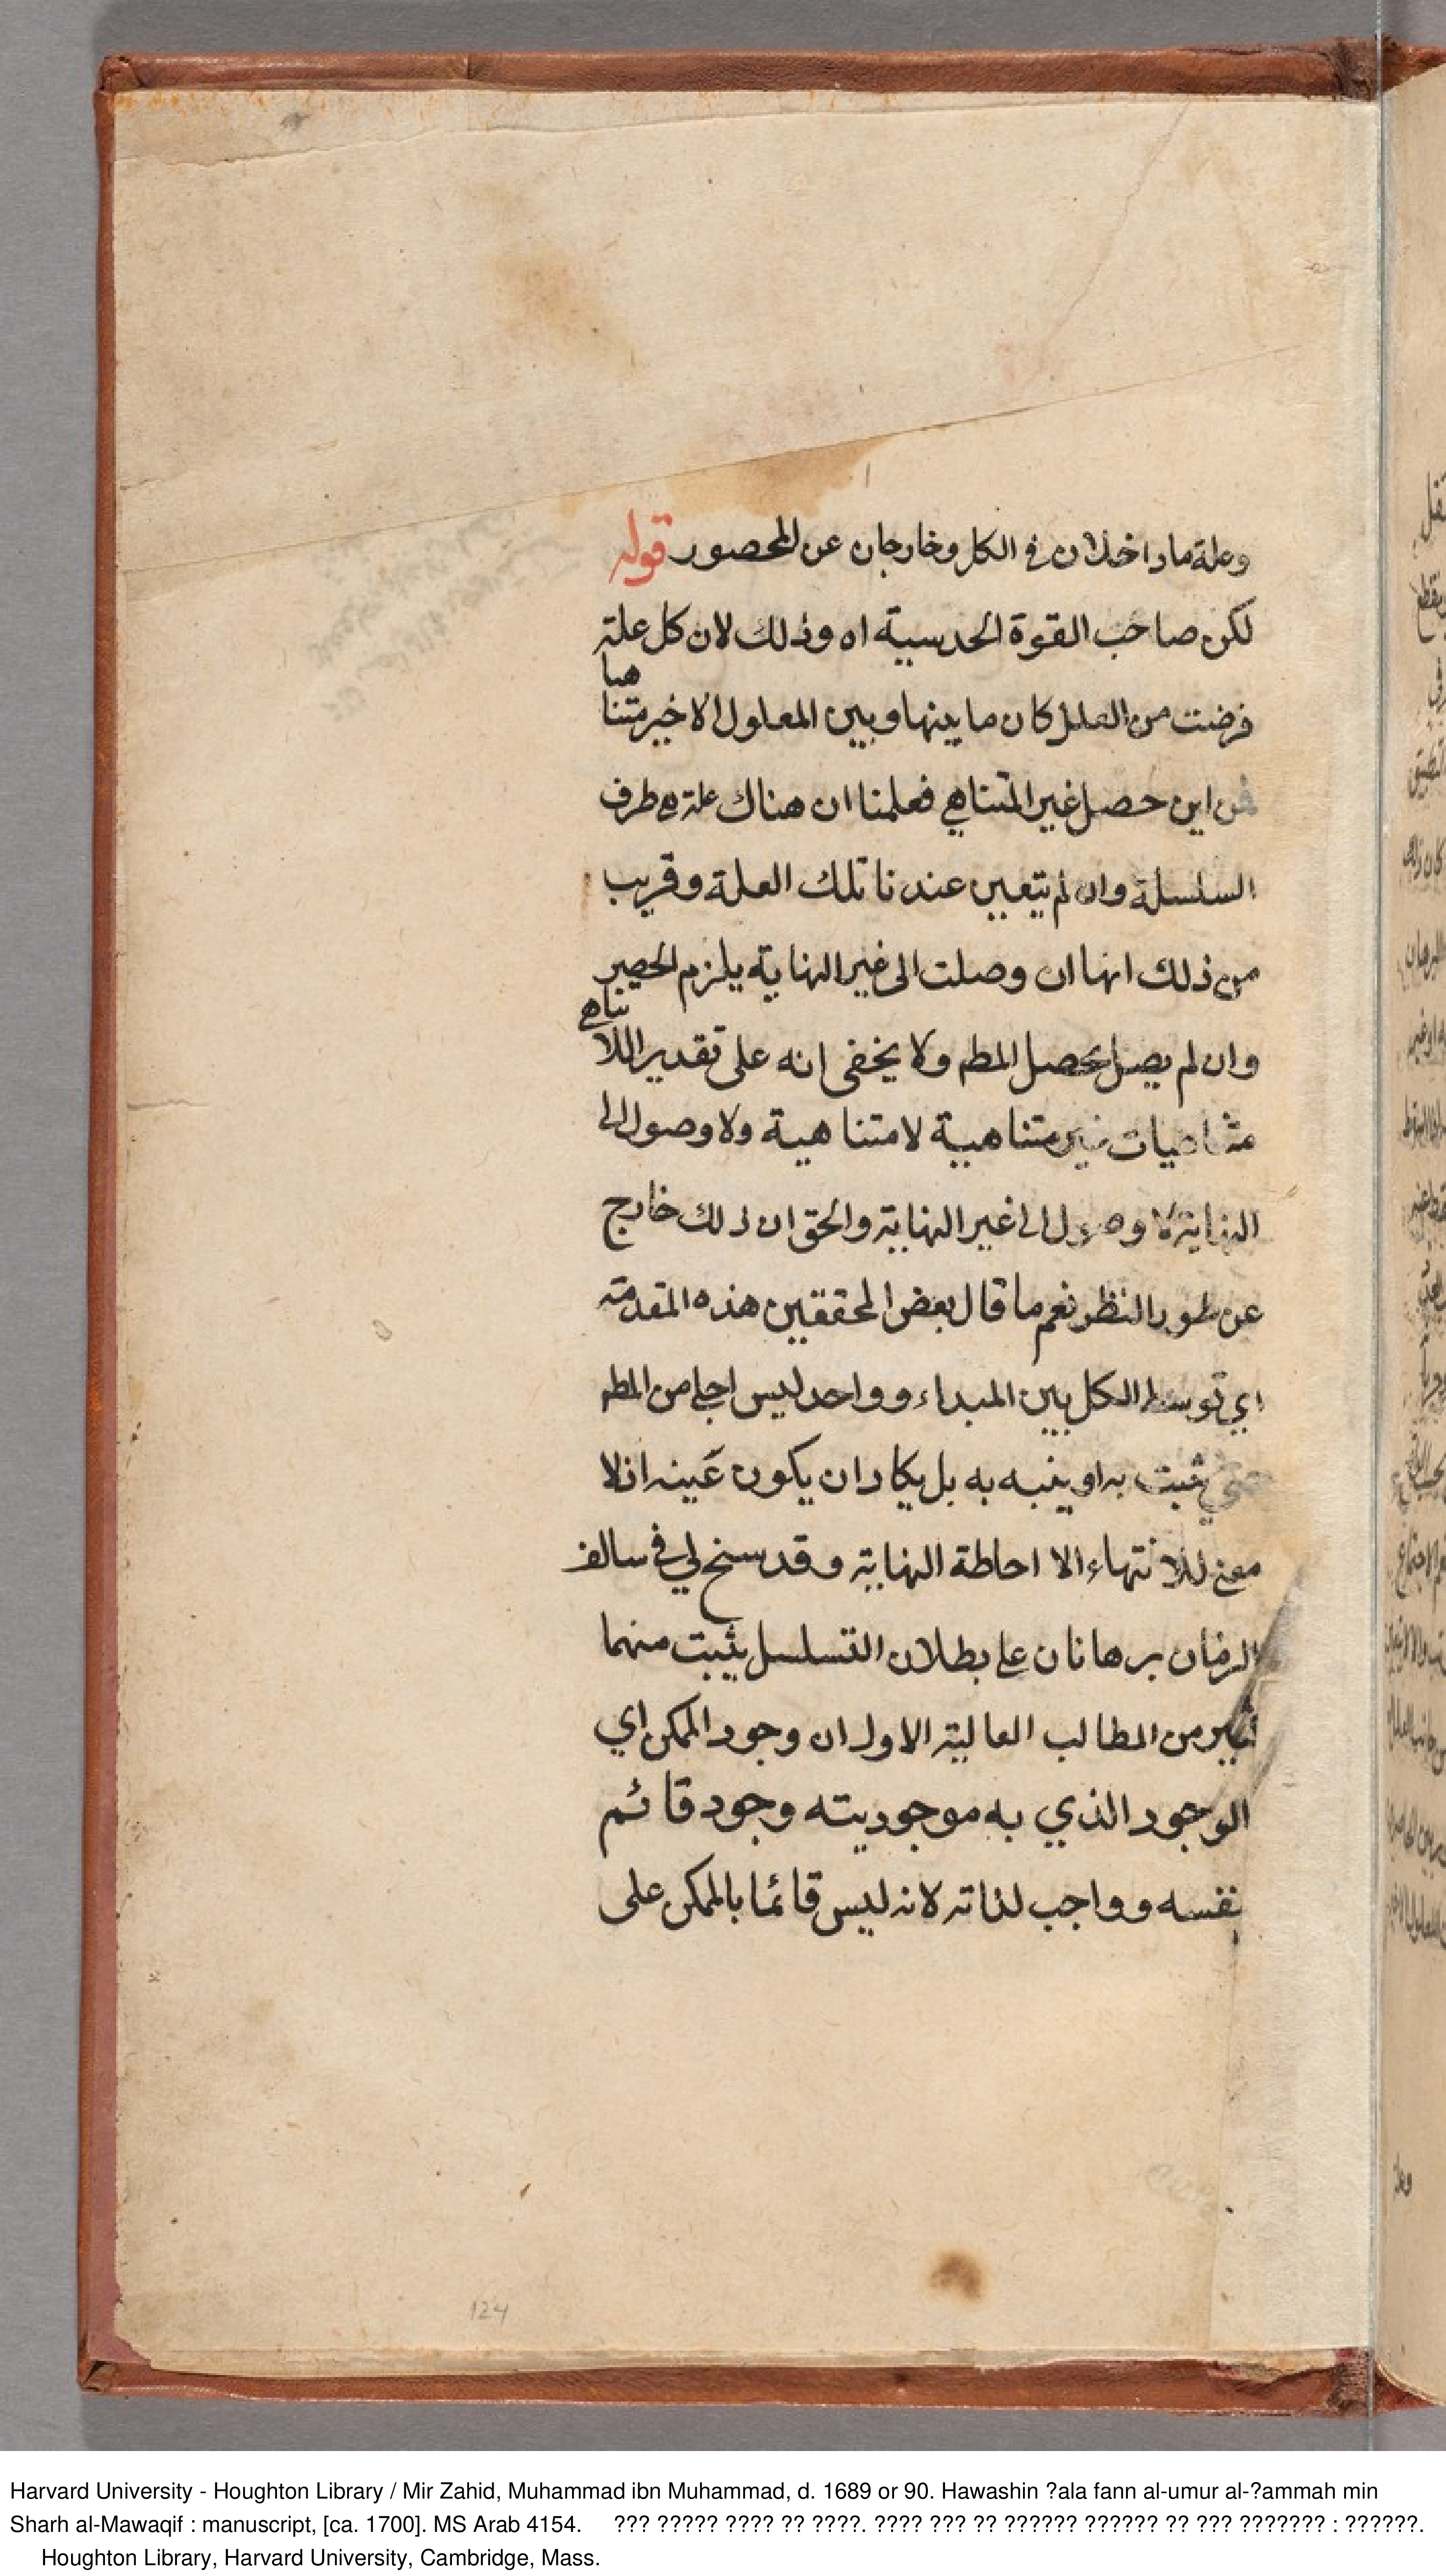 وعلة ما داخلان في الكل وخارجان عن المحصور قوله
لكن صاحب القوة الحدسية اه وذلك لان كل علة
فرضت من العلل كان ما بينها وبين المعلول الاخير متنا
هيا
فمن اين حصل غير المتناهي فعلمنا ان هناك علة هي طرف
السلسلة وان لم يتعين عندنا تلك العلة وقريب
من ذلك انها ان وصلت الى غير النهاية يلزم الحصر
وان لم يصل يحصل المطم ولا يخفى انه على تقدير اللا
تناهي
متناهيات غير متناهية لا متناهية ولا وصول الى
النهاية لا وصول الى غير النهاية والحق ان ذلك خارج
عن طور النظر نعم ما قال بعض المحققين هذه المقدمة
اي توسط الكل بين المبداء وواحد ليس اجلى من المطم
حتى يثبت به او ينبه به بل يكاد ان يكون عينه اذ لا
معنى للانتهاء الا احاطة النهاية وقد سنح لي في سالف
الزمان برهانان على بطلان التسلسل يثبت منهما
كثير من المطالب العالية الاول ان وجود الممكن اي
الوجود الذي به موجوديته وجود قائم
بنفسه وواجب لذاته لانه ليس قائما بالممكن على
124
Harvard University - Houghton Library / Mir Zahid, Muhammad ibn Muhammad, d. 1689 or 90. Hawashin ?ala fann al-umur al-?ammah min
Sharh al-Mawaqif : manuscript, [ca. 1700]. MS Arab 4154. ??? ????? ???? ?? ????. ???? ??? ?? ?????? ?????? ?? ??? ??????? : ??????.
Houghton Library, Harvard University, Cambridge, Mass.